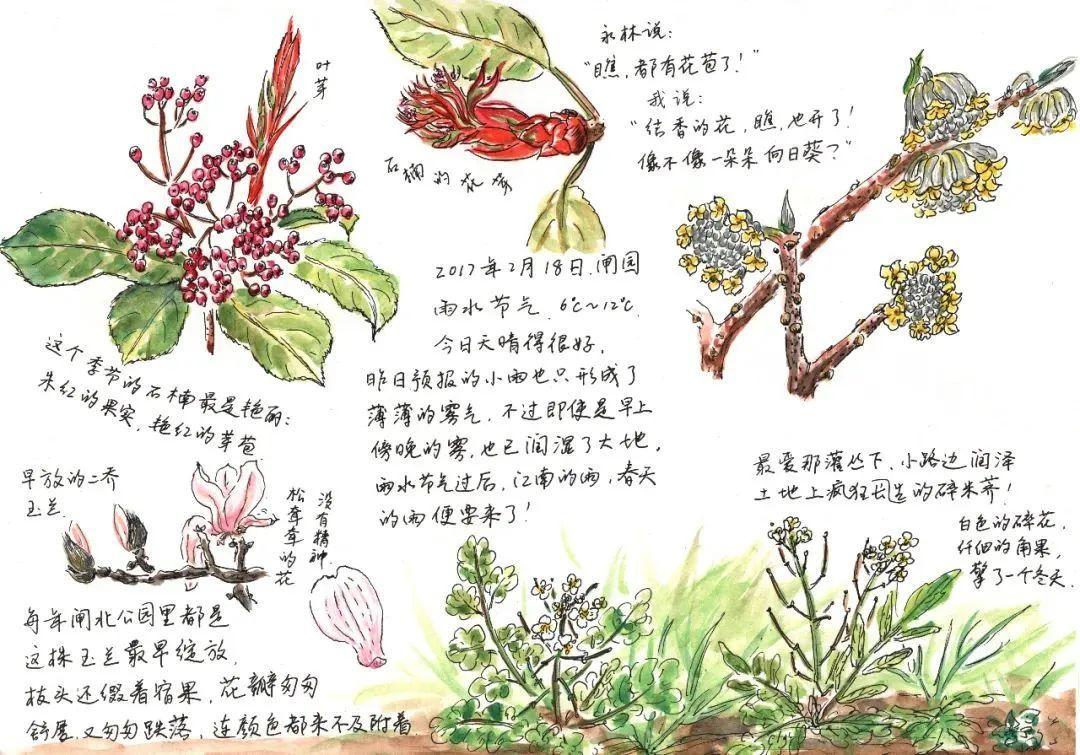 叶芽
永林说：
“瞧，都有花苞了！”
我说：
“结香的花，瞧，也开了！
像不像一朵朵向日葵？”
石楠的花芽
2017年2月18日.闸园
雨水节气. 6℃～12℃.
今日天晴得很好，
昨日预报的小雨也只形成了
薄薄的雾气，不过即使是早上
傍晚的雾，也已润湿了大地，
雨水节气过后，江南的雨，春天
的雨便要来了！
这个季节的石楠最是艳丽：
朱红的果实，艳红的芽苞
早放的二乔
玉兰.
没有精神
松牵牵的花
每年闸北公园里都是
这株玉兰最早绽放，
枝头还假着宿果，花瓣匆匆
舒展，又匆匆跌落，连颜色都来不及附着
最爱那灌丛下，小路边润泽
土地上疯狂生的碎米荠！
白色的碎花，
仟细的角果，
擎了一个冬天.